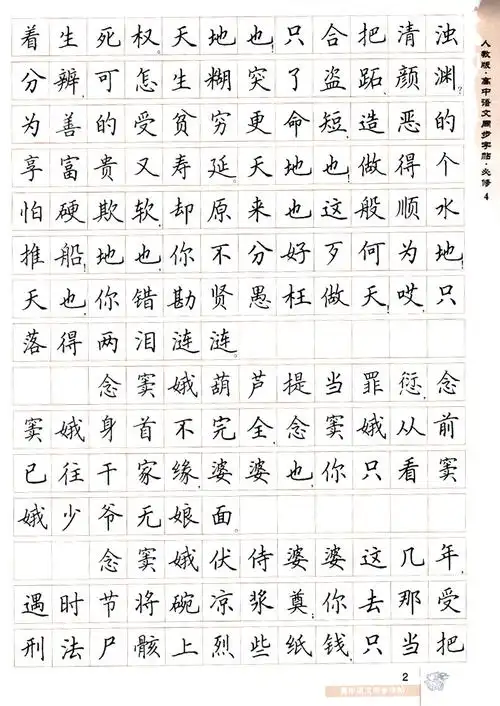 着生死权。天地也！只合把清浊
分辨，可怎生糊突了盗跖，颜渊。
为善的受贫穷更命短，造恶的
享富贵又寿延。天地也！做得个
怕硬欺软，却原来也这般顺水
推船！地也，你不分好歹何为地！
天也，你错勘贤愚枉做天！哎，只
落得两泪涟涟。
念窦娥葫芦提当罪愆，念
窦娥身首不完全，念窦娥从前
已往干家缘，婆婆也，你只看窦
娥少爷无娘面。
念窦娥伏侍婆婆这几年，
遇时节将碗凉浆奠；你去那受
刑法尸骸上烈些纸钱，只当把
人教版·高中语文同步字帖·必修4
2
高中语文同步字帖